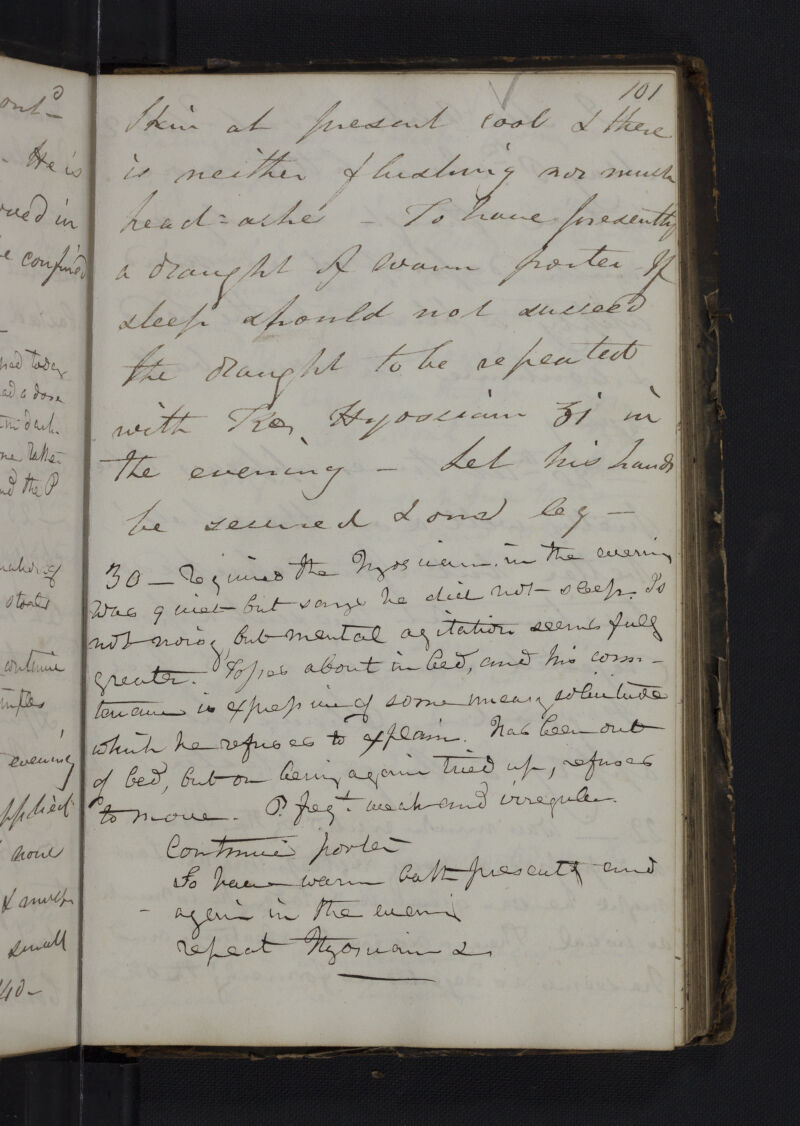 101
Skin at present cool & there
is neither flushing nor much
head=ache – To have presently
a draught of warm porter If
sleep should not succeed
the draught to be repeated
with Tr Hyosciam ʒi in
the evening – Let his hands
be secured & one leg –
30 – required the Hyosciam. in the evening
Was quiet but says he did not sleep. Is
not noisy, but mental agitation seems fully
greater. Tosses about in bed, and his coun-
tenance is expressive of some uneasy solicitude
which he refuses to explain. Has been out
of bed, but on being again tried up, refuses
to move. P. freqt. weak and irregular.
Continue porter
To have warm bath presently and
again in the evening
repeat Hyosciam &c
ont.d
He is
oved in
e confined
had today
ad a dose
and the P
stools
continue
evening
applied
none
small
40–